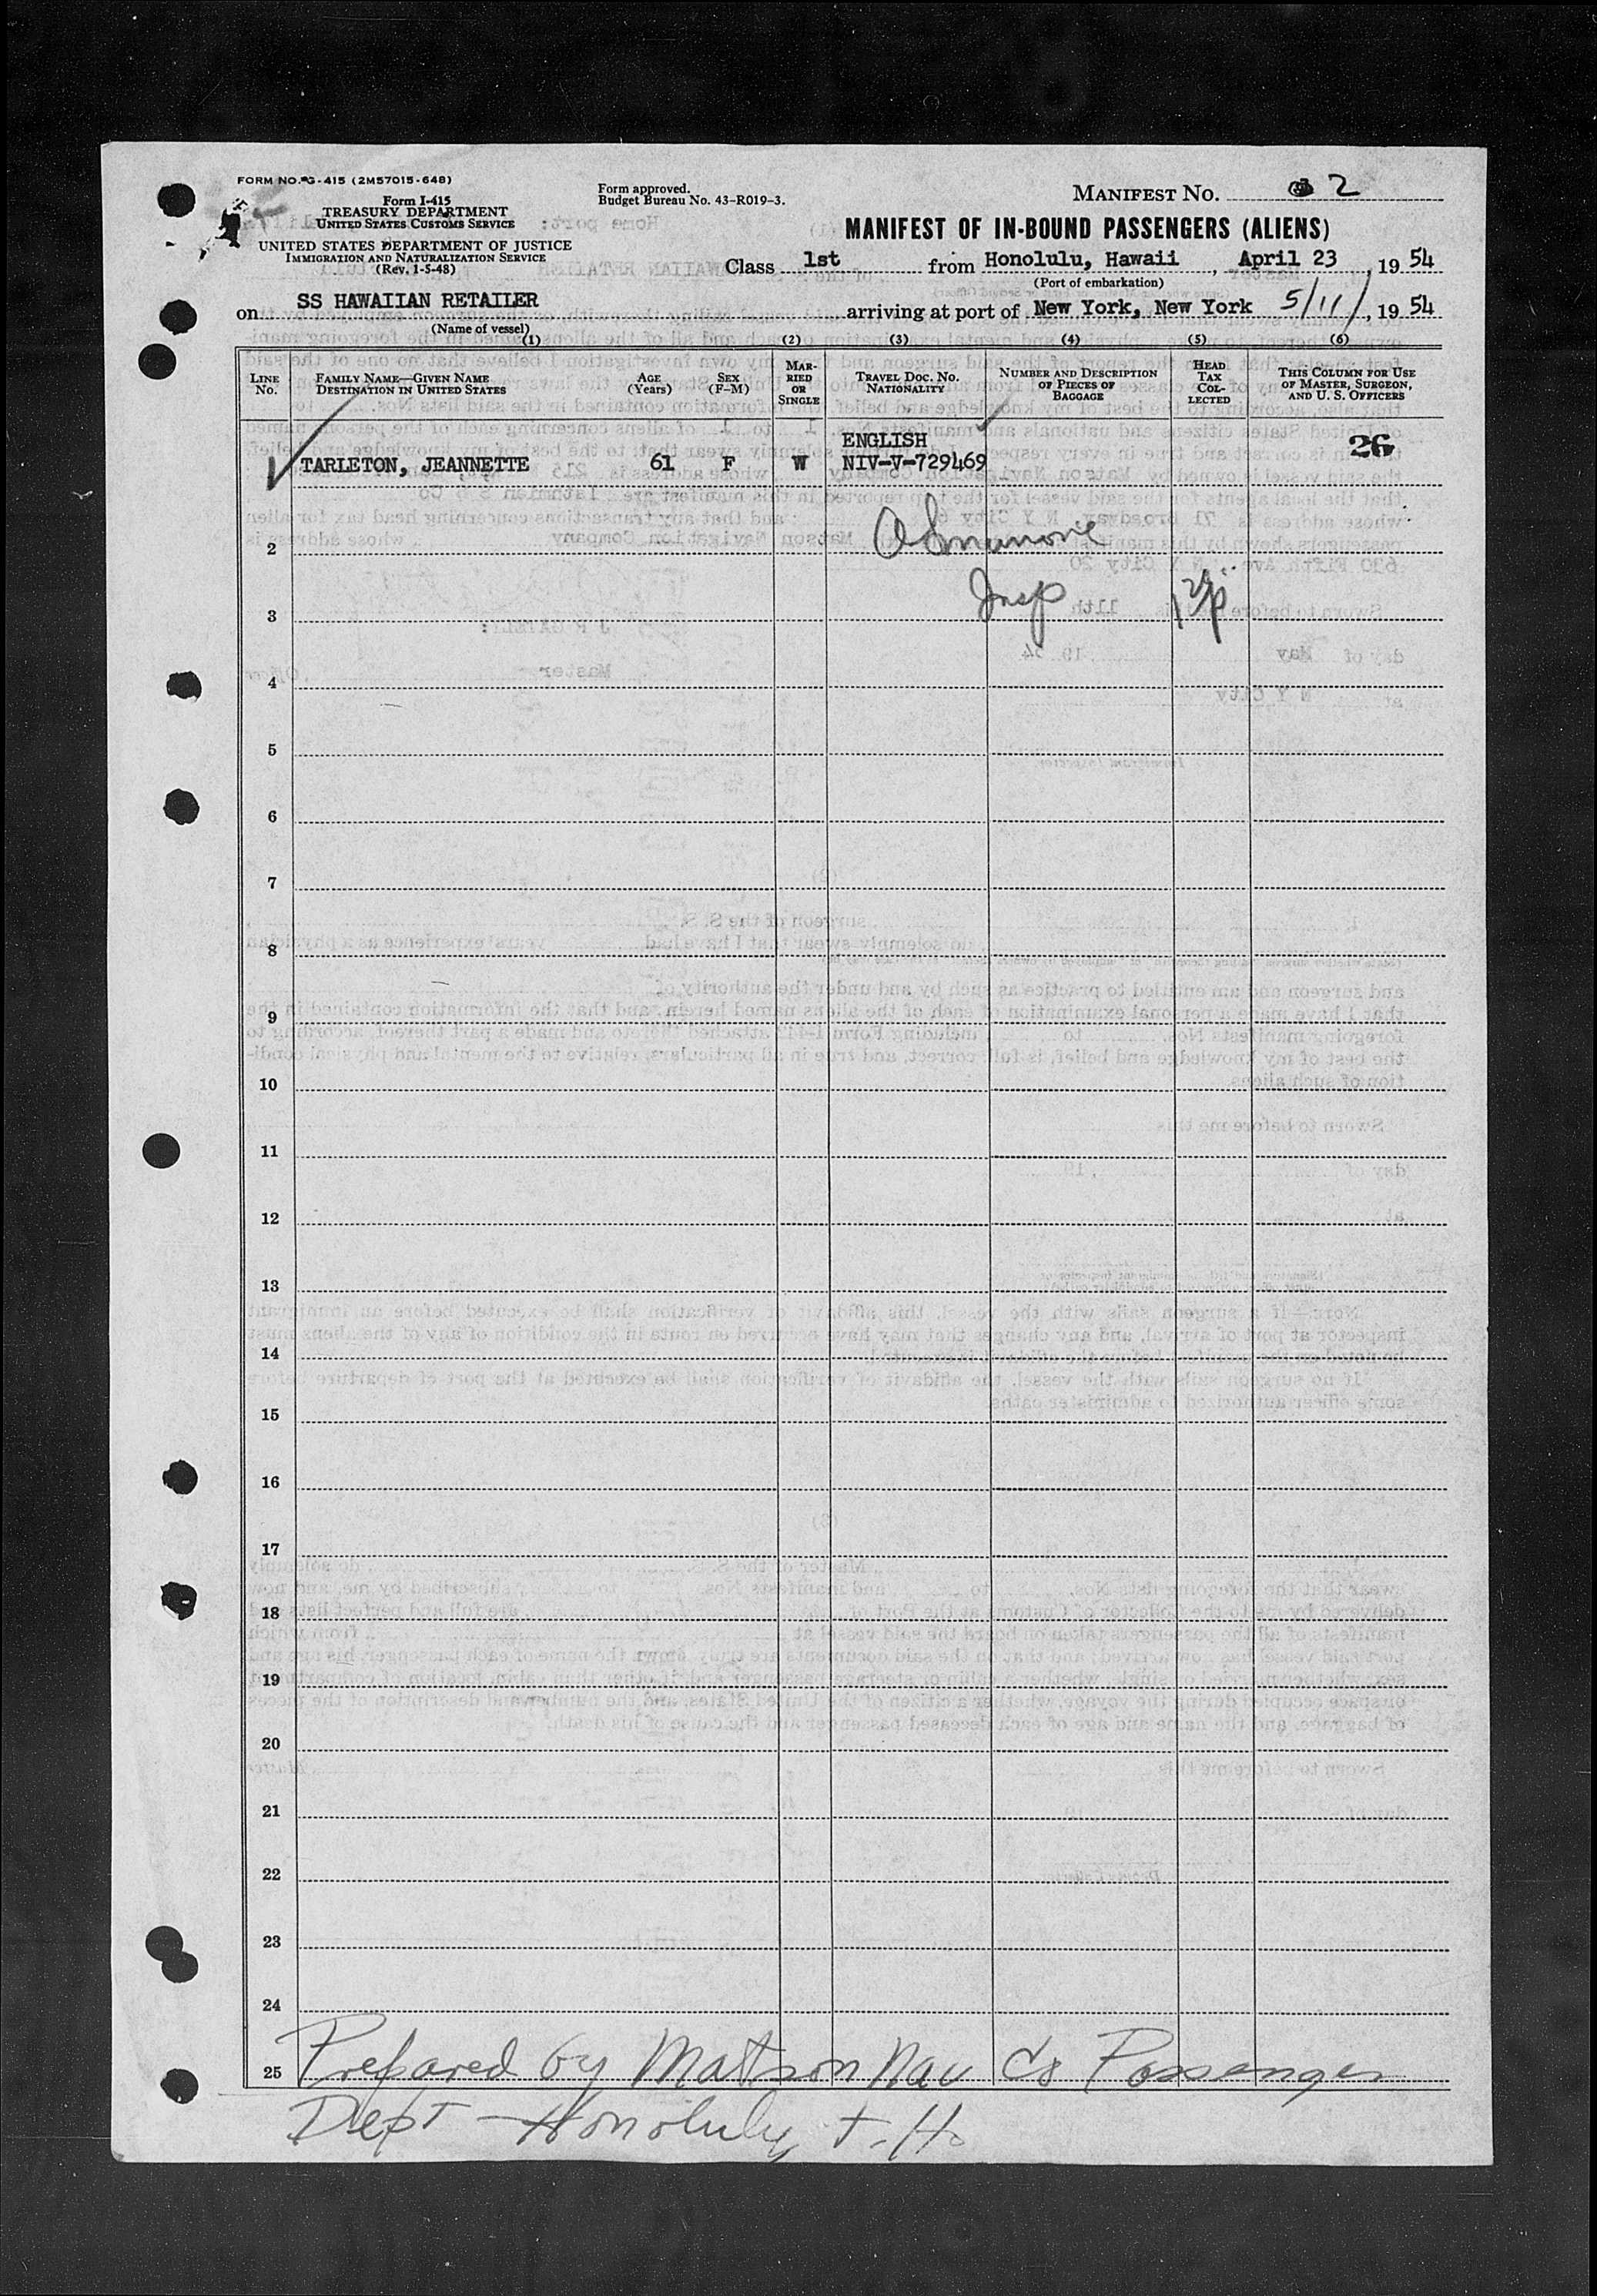 FORM NO. G-415 (2M57015-648)
Form I-415
TREASURY DEPARTMENT
UNITED STATES CUSTOMS SERVICE
UNITED STATES DEPARTMENT OF JUSTICE
IMMIGRATION AND NATURALIZATION SERVICE
(Rev. 1-5-48)
Form approved.
Budget Bureau No. 43-R019-3.
MANIFEST NO. 2
MANIFEST OF IN-BOUND PASSENGERS (ALIENS)
Class 1st from Honolulu, Hawaii, April 23, 19 54
(Port of embarkation)
on SS HAWAIIAN RETAILER arriving at port of New York, New York 5/11/, 19 54
(Name of vessel)
(1) (2) (3) (4) (5) (6)
LINE No. FAMILY NAME—GIVEN NAME DESTINATION IN UNITED STATES AGE (Years) SEX (F-M) MARRIED OR SINGLE TRAVEL DOC. NO. NATIONALITY NUMBER AND DESCRIPTION OF PIECES OF BAGGAGE HEAD TAX COLLECTED THIS COLUMN FOR USE OF MASTER, SURGEON, AND U. S. OFFICERS
ENGLISH
TARLETON, JEANNETTE 61 F W NIV-V-729469 26
2
Insp
3
4
5
6
7
8
9
10
11
12
13
14
15
16
17
18
19
20
21
22
23
24
25 Prepared by Matson Nav Co Passenger
Dept - Honolulu, T. H.